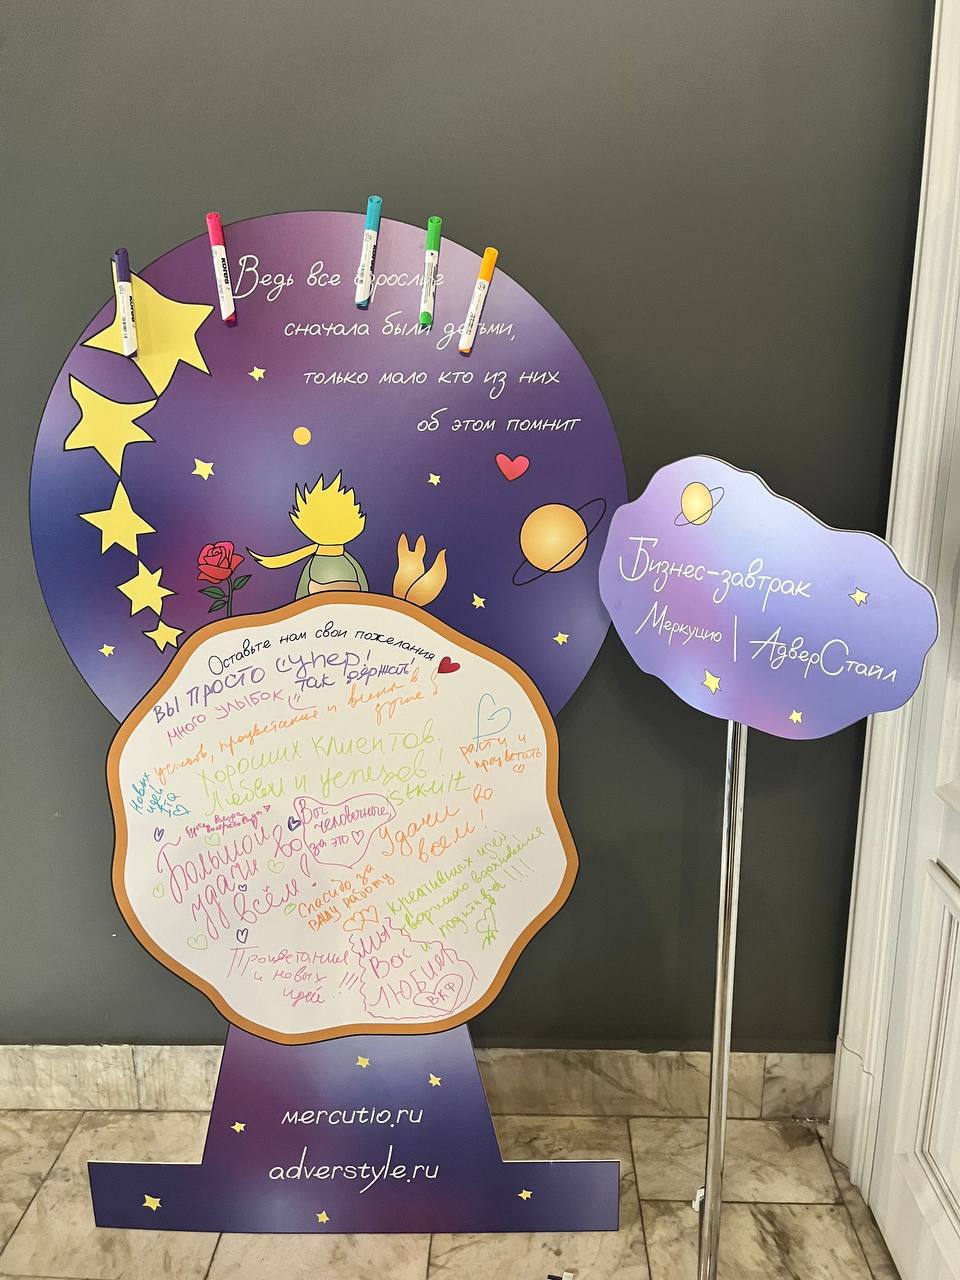 Ведь все взрослые
сначала были детьми,
только мало кто из них
об этом помнит
Бизнес-завтрак
Меркуцио | АдверСтайл
Оставьте нам свои пожелания
ВЫ ПРОСТО СУПЕР!
так держать!
МНОГО УЛЫБОК
успехов, процветания и весны в
душе
Хороших клиентов.
Любви и успехов!
расти и
процветать
Новых
идей
Вы
человечные,
за это
Большой
удачи во
всём!
Удачи
во
всем!
Спасибо за
ВАШУ работу
креативных идей
творческого вдохновения
и позитива!!!!
Процветания
и новых
идей!!!
Мы
Вас
ЛЮБИМ
ВКФ
mercutio.ru
adverstyle.ru